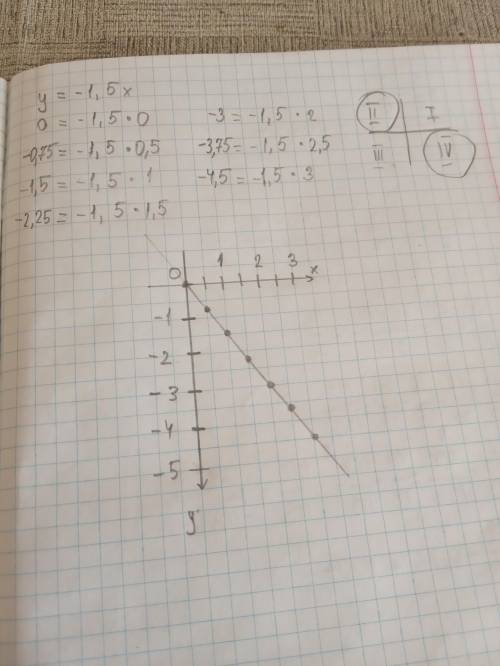 y = -1,5x
0 = -1,5 · 0
-0,75 = -1,5 · 0,5
-1,5 = -1,5 · 1
-2,25 = -1,5 · 1,5
-3 = -1,5 · 2
-3,75 = -1,5 · 2,5
-4,5 = -1,5 · 3
II I
III IV
0 1 2 3 x
-1
-2
-3
-4
-5
y